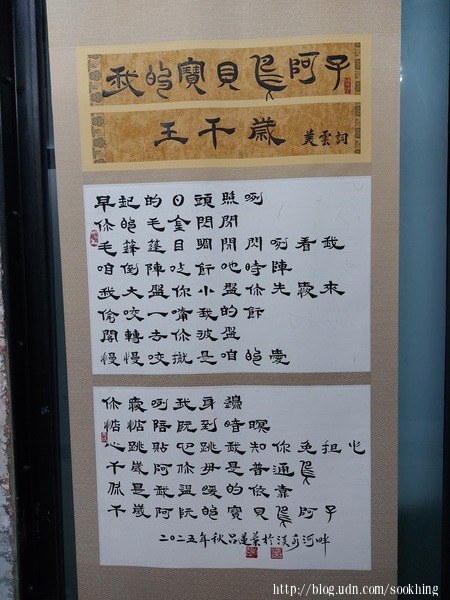 我的寶貝鳥阿子
王千歲 美雲詞
早起的日頭照咧
你的毛金閃閃
毛蓬蓬目睭開閃咧看我
咱倒陣吃飯吔時陣
我大盤你小盤你先靠來
偷咬一嘴我的飯
閣轉去你彼盤
慢慢咬這是咱的愛
你靠咧我身邊
惦惦陪阮到暗暝
心跳貼阮心跳我知你免担心
千歲阿你毋是普通鳥
你是我溫暖的依靠
千歲阿阮的寶貝鳥阿子
二〇二五年秋呂蓮葉於淡水河畔
http://blog.udn.com/sookhing